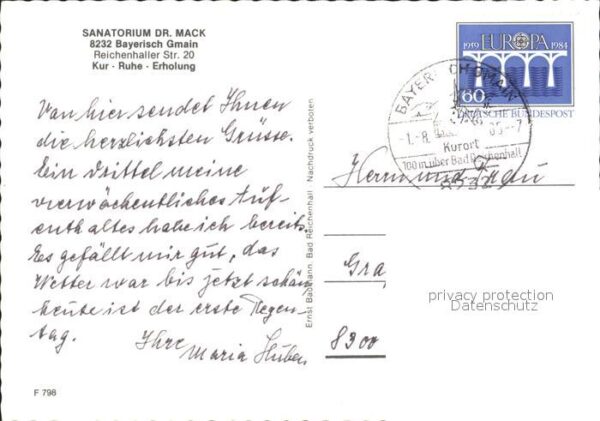 SANATORIUM DR. MACK
8232 Bayerisch Gmain
Reichenhaller Str. 20
Kur · Ruhe · Erholung
Von hier sendet Ihnen
die herzlichsten Grüsse.
Ein drittel meine
vierwöchentliches Auf-
enthaltes habe ich bereits.
Es gefällt mir gut, das
Wetter war bis jetzt schön,
heute ist der erste Regen-
tag. Ihre
Maria Huber
F 798
Ernst Baumann, Bad Reichenhall Nachdruck verboten
EUROPA
1959 1984
60
DEUTSCHE BUNDESPOST
BAYER. GMAIN
-1.-8. 85.-7
Kurort
100 m über Bad Reichenhall
8232
Herrn und Frau
Gra
8300
privacy protection
Datenschutz